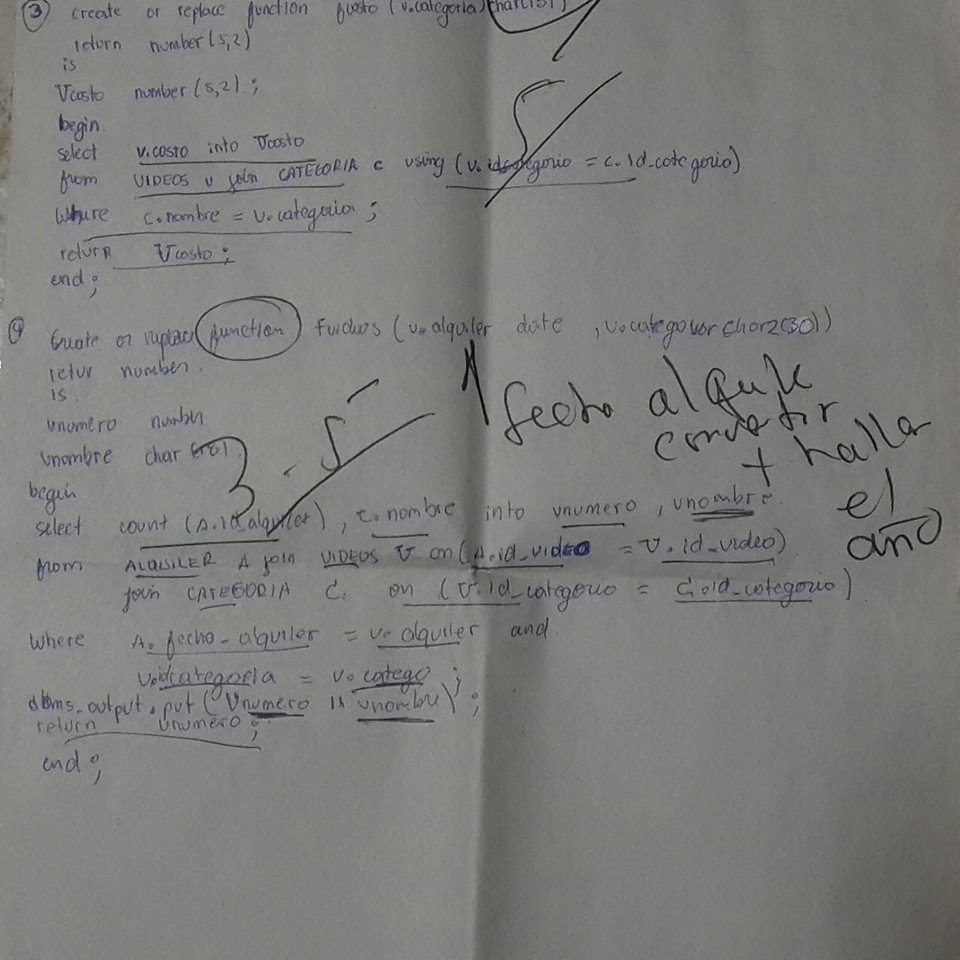 ③ create or replace function fcosto (v.categoria char(15))
return number (5,2)
is
Vcosto number (5,2);
begin
select v.costo into Vcosto
from VIDEOS v join CATEGORIA c using (v.idcategorio = c.id_categorio)
Where c.nombre = v.categoria;
return Vcosto;
end;
5
④ Create or replace function (v.alquiler date,
retur number.
is.
vnumero number
vnombre char
begin
3.5
fecha alquile
convertir
+ halla
el
año
select count (A.id_alquiler), c.nombre into vnumero, vnombre.
from ALQUILER A join VIDEOS V on (A.id_video = V.id_video)
join CATEGORIA C. on (V.id_categorio = C.id_categorio)
where A.fecho_alquiler = v.alquiler and.
v.idcategoria = v.catego;
dbms_output.put (Vnumero || vnombre);
return vnumero;
end;